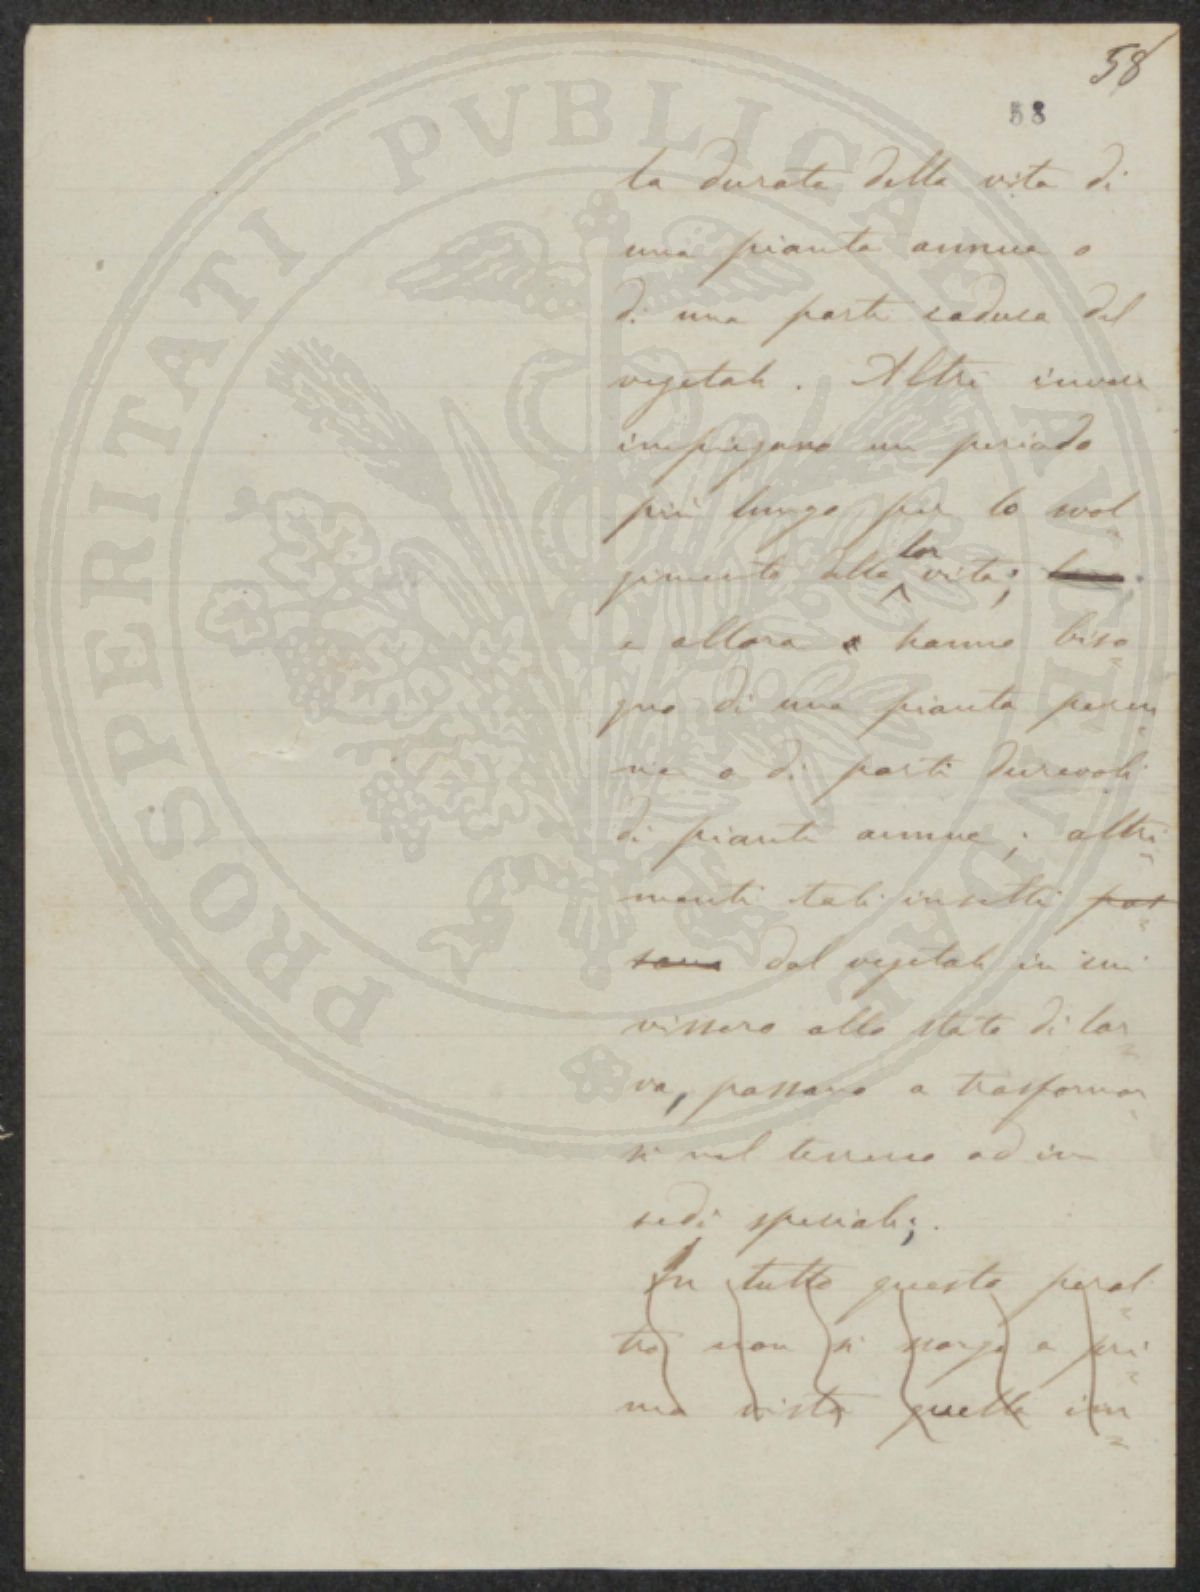 58
58
la durata della vita di
una pianta annua o
di una parte caduca del
vegetale. Altri invece
impiegano un periodo
più lungo per lo svol
gimento della lor vita; loro
e allora hanno biso
gno di una pianta peren
ne o di parti durevoli
di piante annue; altri
menti tali insetti pas
sano dal vegetale in cui
vissero allo stato di lar
va, passano a trasformar
si nel terreno od in
sedi speciali;.
In tutto questo peral
tro non si scorge a pri
ma vista quella im
PROSPERITATI PVBLICAE AVGENDAE